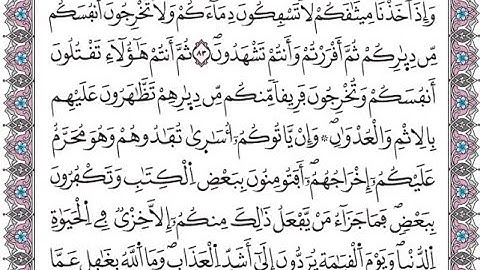 وَإِذَ اَخَذْنَا مِيثَٰقَكُمْ لَا تَسْفِكُونَ دِمَآءَكُمْ وَلَا تُخْرِجُونَ أَنفُسَكُم
مِّن دِيٰ۪رِكُمْ ثُمَّ أَقْرَرْتُمْ وَأَنتُمْ تَشْهَدُونَۖ ۝٨٣ ثُمَّ أَنتُمْ هَٰٓؤُلَآءِ تَقْتُلُونَ
أَنفُسَكُمْ وَتُخْرِجُونَ فَرِيقاٗ مِّنكُم مِّن دِيٰ۪رِهِمْ تَظَّٰهَرُونَ عَلَيْهِم
بِالِاثْمِ وَالْعُدْوَٰنِۖ وَإِنْ يَّاتُوكُمُۥٓ أُسَٰر۪يٰ تُفَٰدُوهُمْ وَهُوَ مُحَرَّمٌ
عَلَيْكُمُۥٓ إِخْرَاجُهُمُۥٓۖ أَفَتُومِنُونَ بِبَعْضِ اِ۬لْكِتَٰبِ وَتَكْفُرُونَ
بِبَعْضٖۖ فَمَا جَزَآءُ مَنْ يَّفْعَلُ ذَٰلِكَ مِنكُمُۥٓ إِلَّا خِزْيٞ فِے اِ۬لْحَيَوٰةِ
اِ۬لدُّنْي۪اۖ وَيَوْمَ اَ۬لْقِيَٰمَةِ يُرَدُّونَ إِلَىٰٓ أَشَدِّ اِ۬لْعَذَابِۖ وَمَا اَ۬للَّهُ بِغَٰفِلٍ عَمَّا